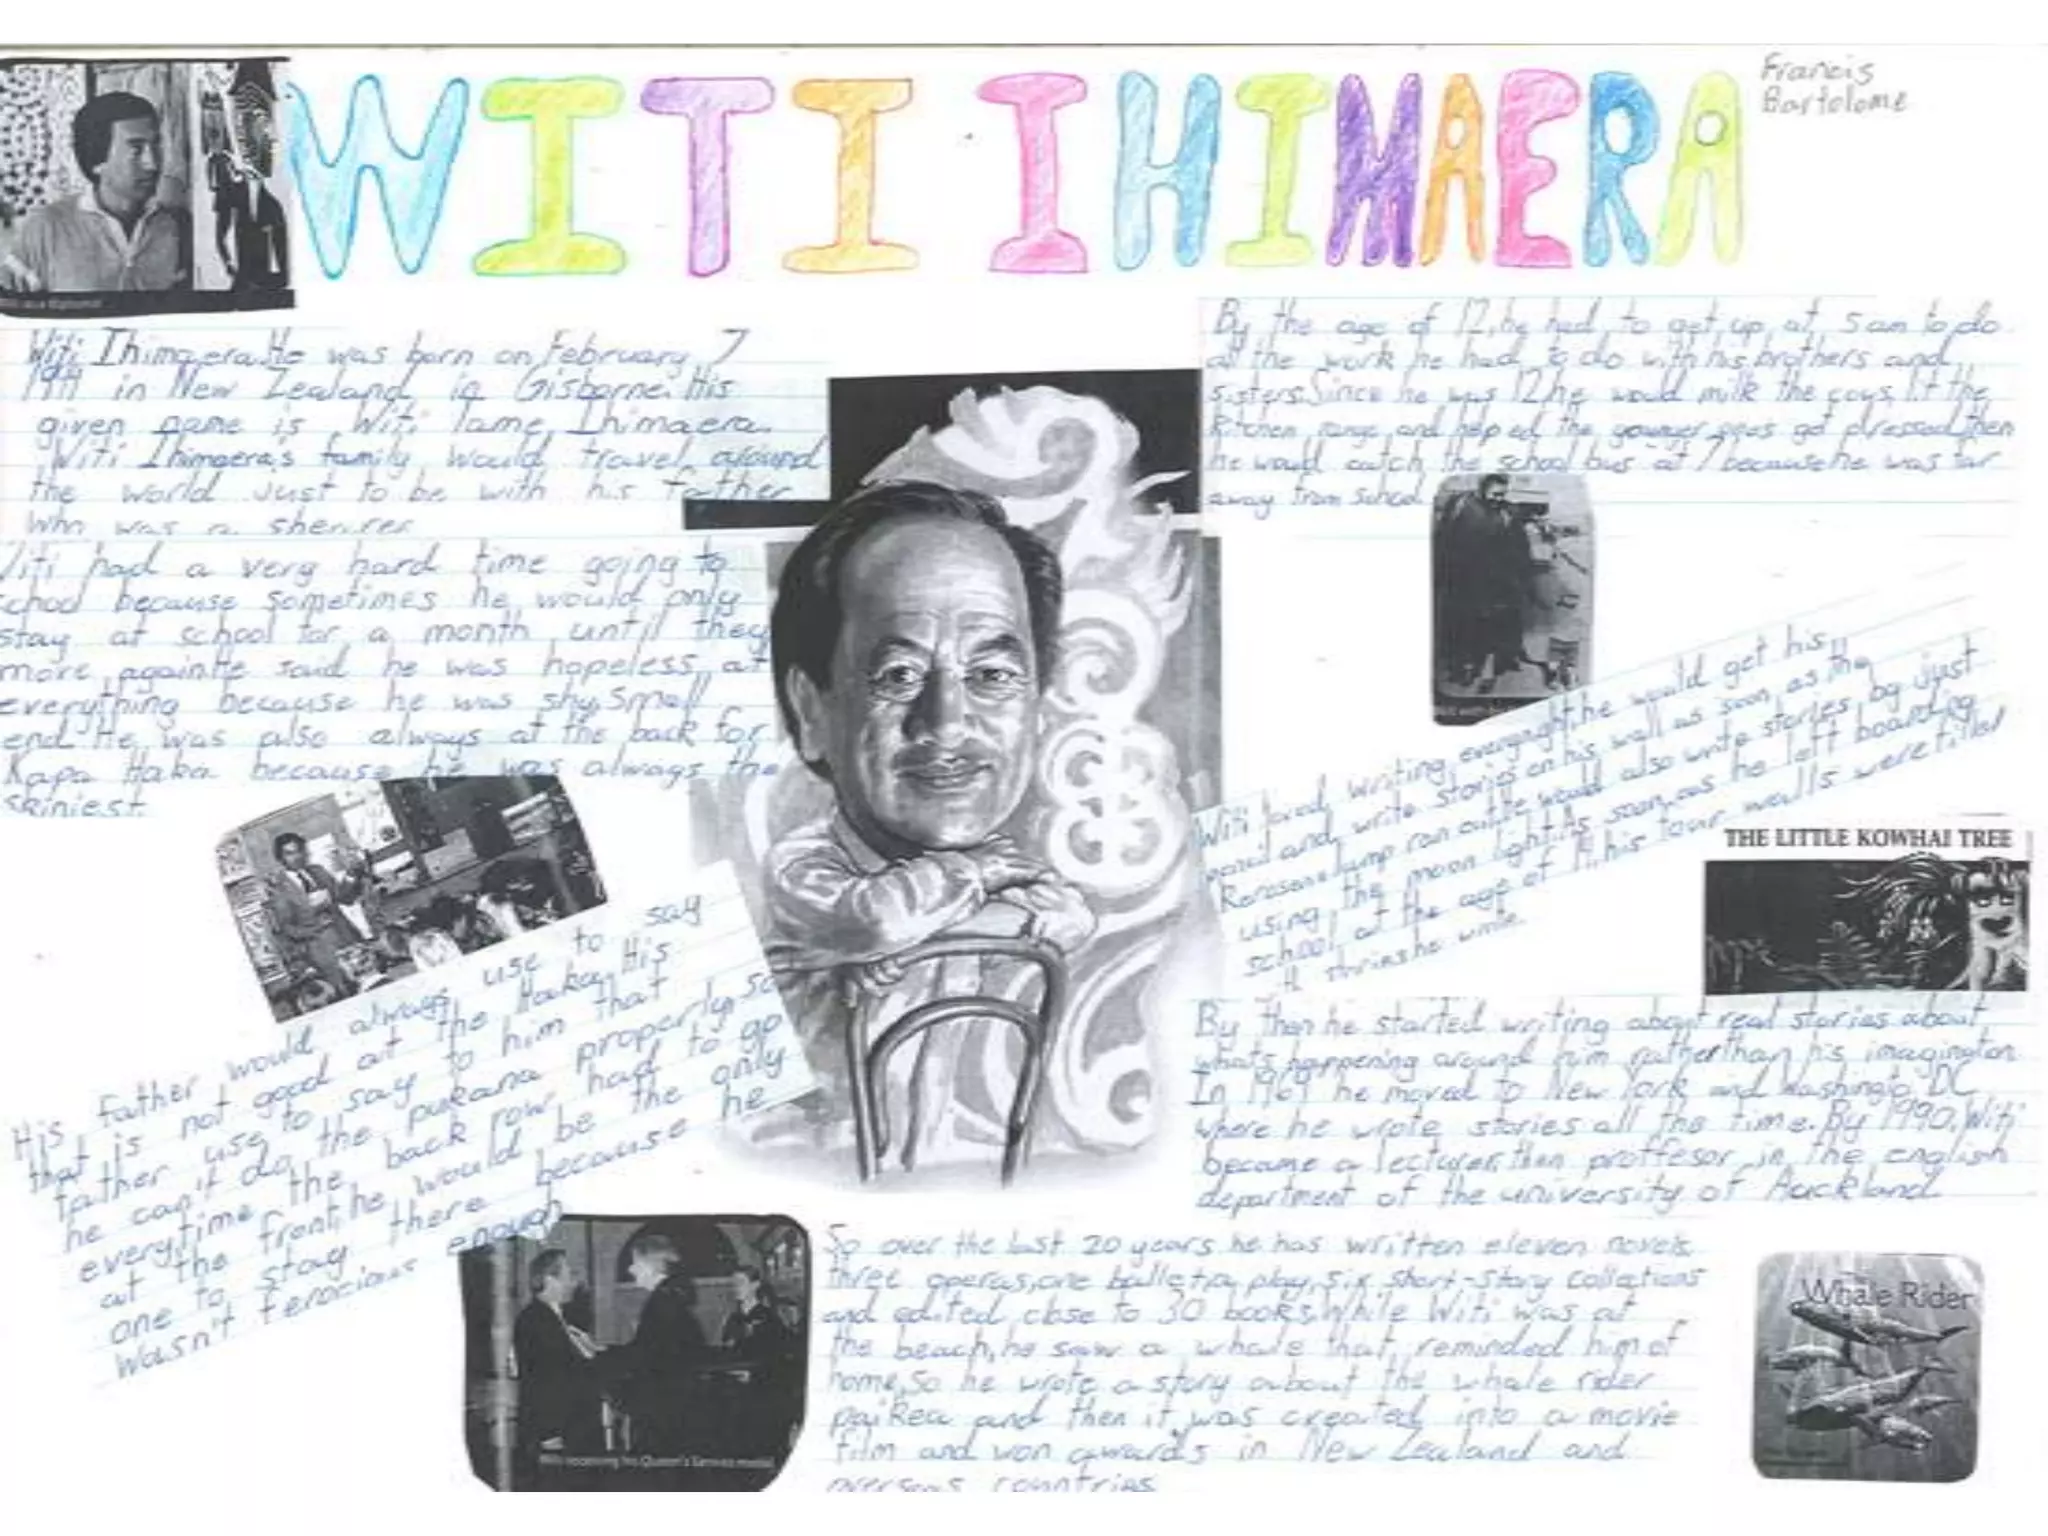 WITI IHIMAERA
Francis
Bartolome
Witi Ihimaera.He was born on February 7
in New Zealand in Gisborne.His
given name is Witi Tame Ihimaera.
Witi Ihimaera's family would travel around
the world just to be with his father
who was a shearer
Witi had a very hard time going to
school because sometimes he would only
stay at school for a month until they
move again.He said he was hopeless at
everything because he was shy,small
and He was also always at the back for
Kapa Haka because he was always the
skiniest.
His father would always use to say
that is not good at the Haka.His
father use to say to him that
he can't do the pukana properly,so
everytime the back row had to go
at the front,he would be the only
one to stay there because he
wasn't ferocious enough
By the age of 12,he had to get up at 5am to do
all the work he had to do with his brothers and
sisters.Since he was 12 he would milk the cows, lit the
kitchen range and helped the younger ones get dressed,then
he would catch the school bus at 7 because he was far
away from school
Witi loved writing, everynight he would get his
pencil and write stories on his wall as soon as the
Kerosene lamp ran out.He would also write stories by just
using the moon light.As soon as he left boarding
school at the age of his four walls were filled
he wrote.
THE LITTLE KOWHAI TREE
By then he started writing about real stories about
whats happening around him rather than his
In 1969 he moved to New York and Washingto DC
where he wrote stories all the time. By 1990, Witi
became a lecturer then proffesor in the english
department of the university of Auckland
So over the last 20 years he has written eleven novels
three operas,one ballet,a play,six short-story collections
and edited close to 30 books.While Witi was at
the beach,he saw a whale that reminded him of
home,So he wrote a story about the whale rider
paikea and then it was created into a movie
film and won awards in New Zealand and
overseas countries
Whale Rider
Witi receiving his Queen's Service medal